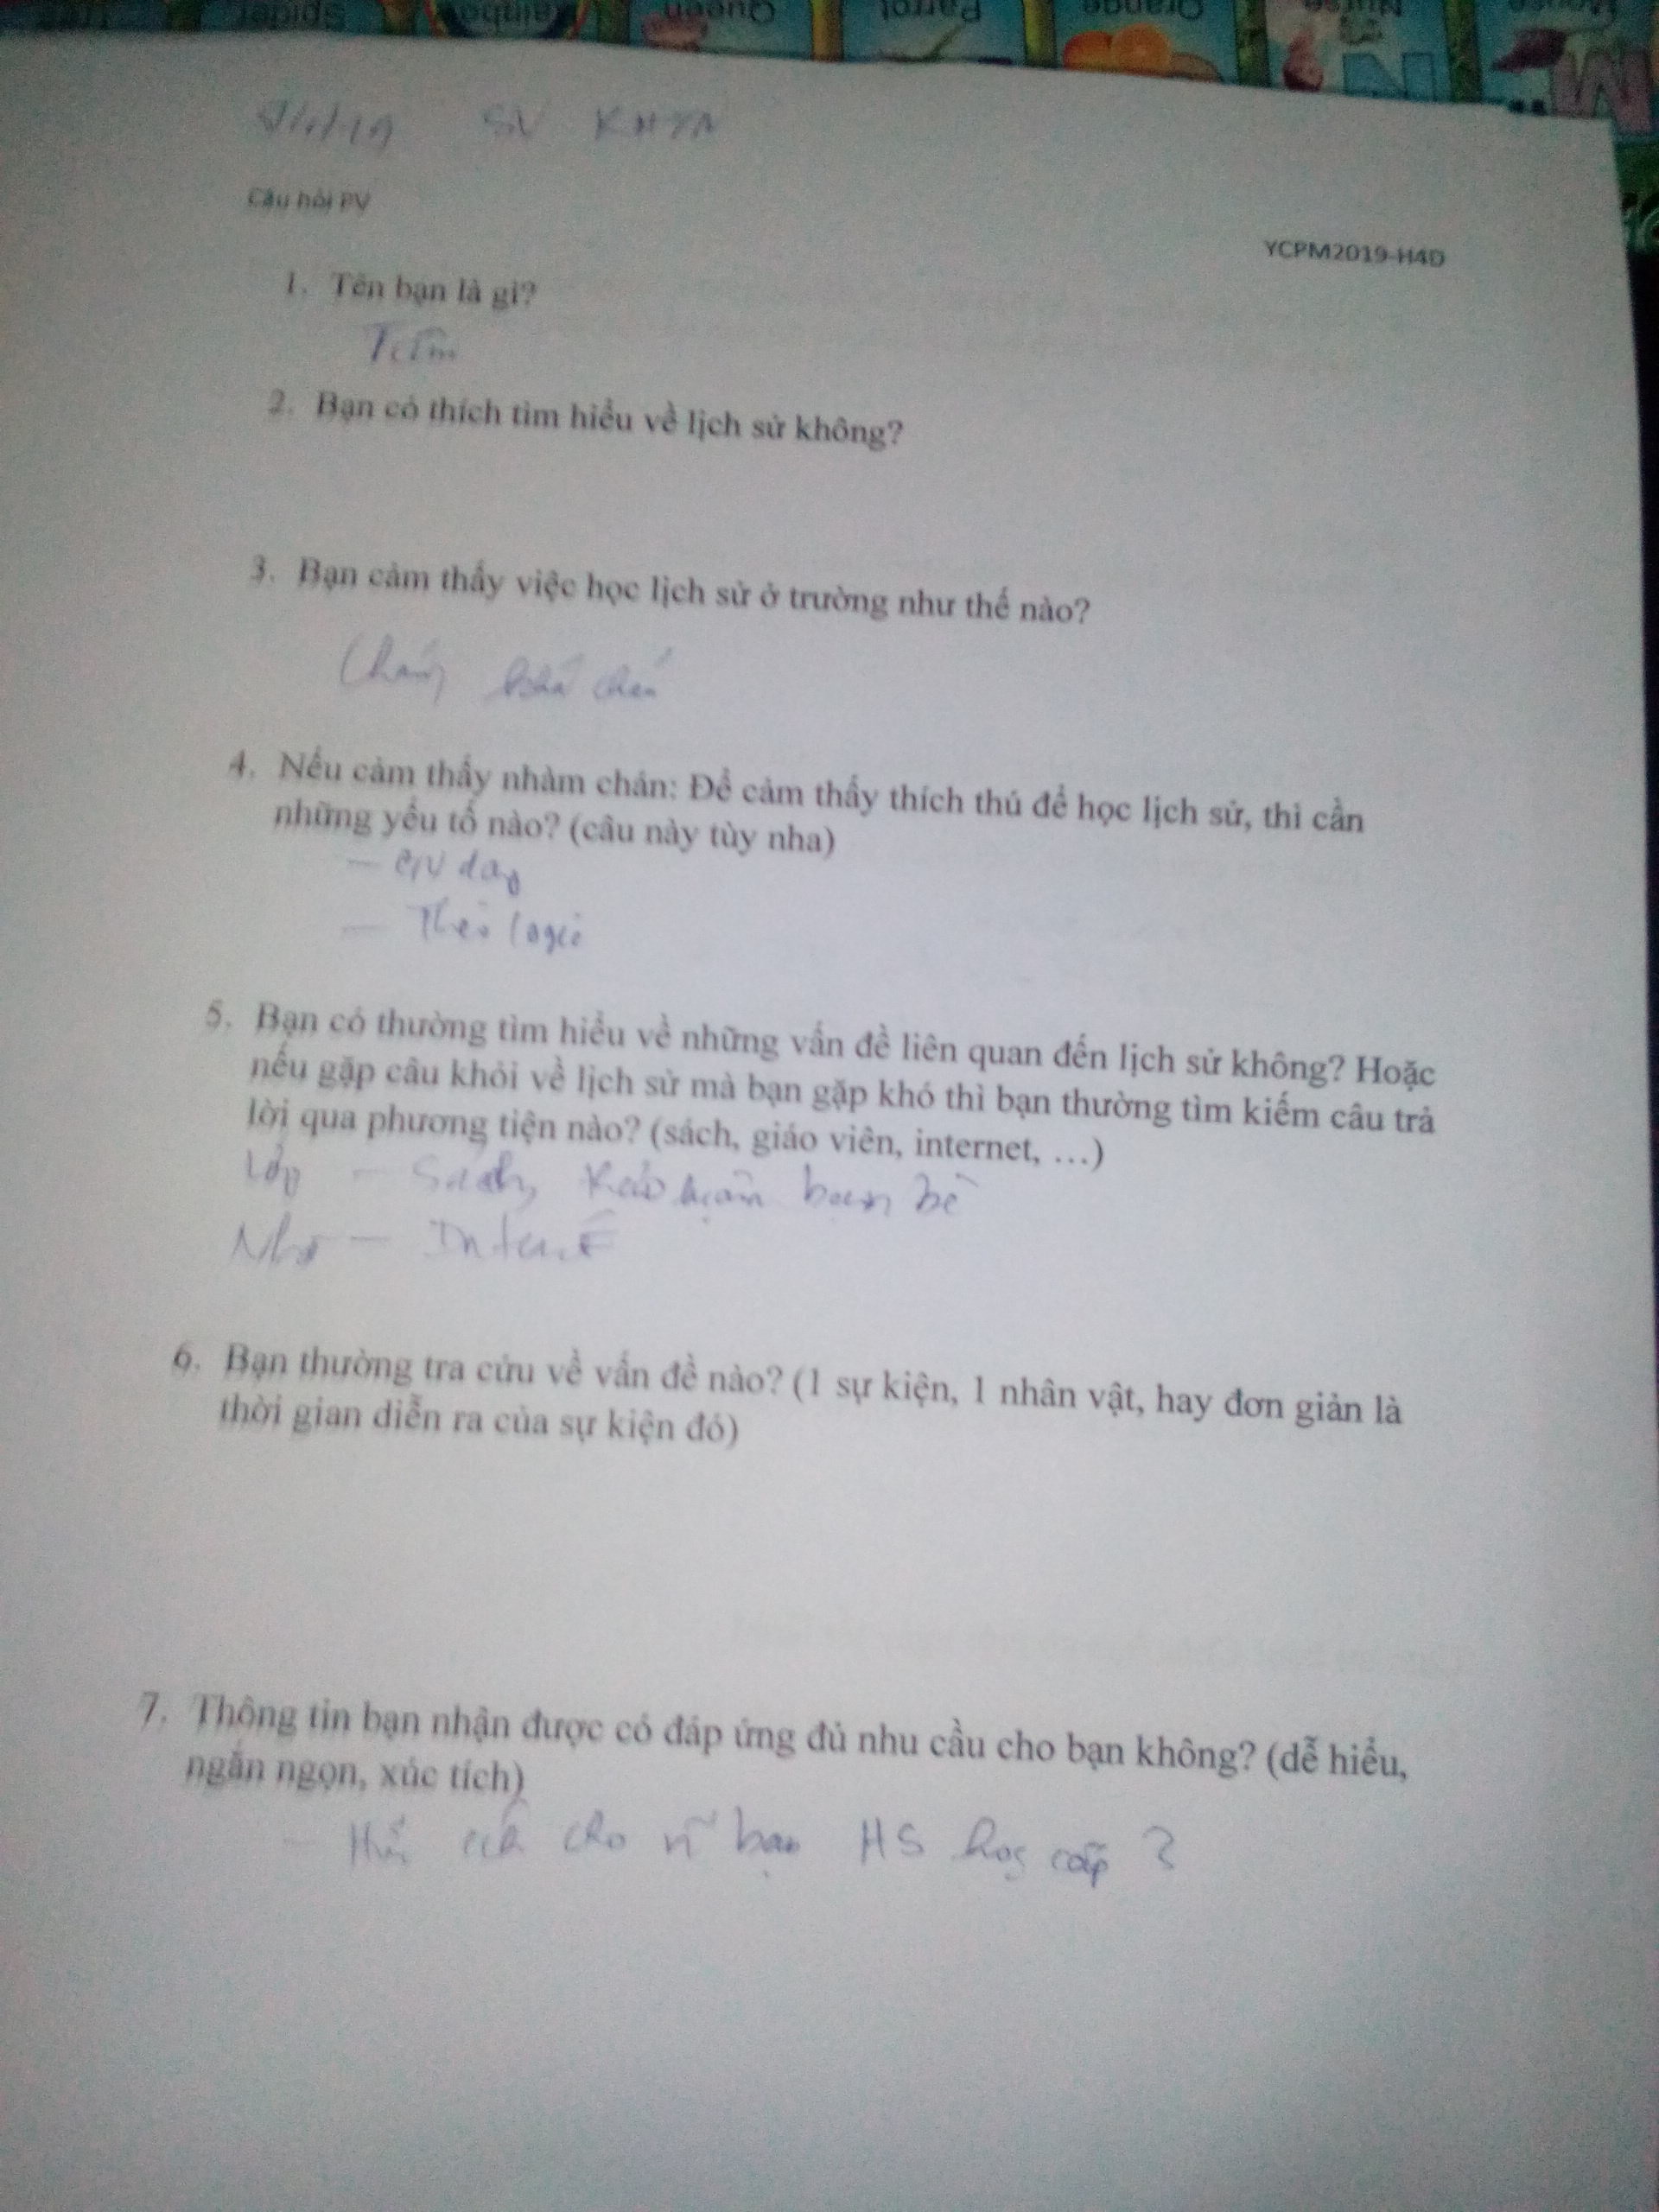 Spider
Rainbow
Queen
Parrot
Orange
Nurse
SV KHTN
Câu hỏi PV
YCPM2019-H4D
1. Tên bạn là gì?
2. Bạn có thích tìm hiểu về lịch sử không?
3. Bạn cảm thấy việc học lịch sử ở trường như thế nào?
4. Nếu cảm thấy nhàm chán: Để cảm thấy thích thú để học lịch sử, thì cần
những yếu tố nào? (câu này tùy nha)
- GV dạy
- Theo logic
5. Bạn có thường tìm hiểu về những vấn đề liên quan đến lịch sử không? Hoặc
nếu gặp câu khỏi về lịch sử mà bạn gặp khó thì bạn thường tìm kiếm câu trả
lời qua phương tiện nào? (sách, giáo viên, internet, …)
Lớp - Sách, bạn bè
Nhà - Internet
6. Bạn thường tra cứu về vấn đề nào? (1 sự kiện, 1 nhân vật, hay đơn giản là
thời gian diễn ra của sự kiện đó)
7. Thông tin bạn nhận được có đáp ứng đủ nhu cầu cho bạn không? (dễ hiểu,
ngắn ngọn, xúc tích)
cho bạn HS học cấp 3